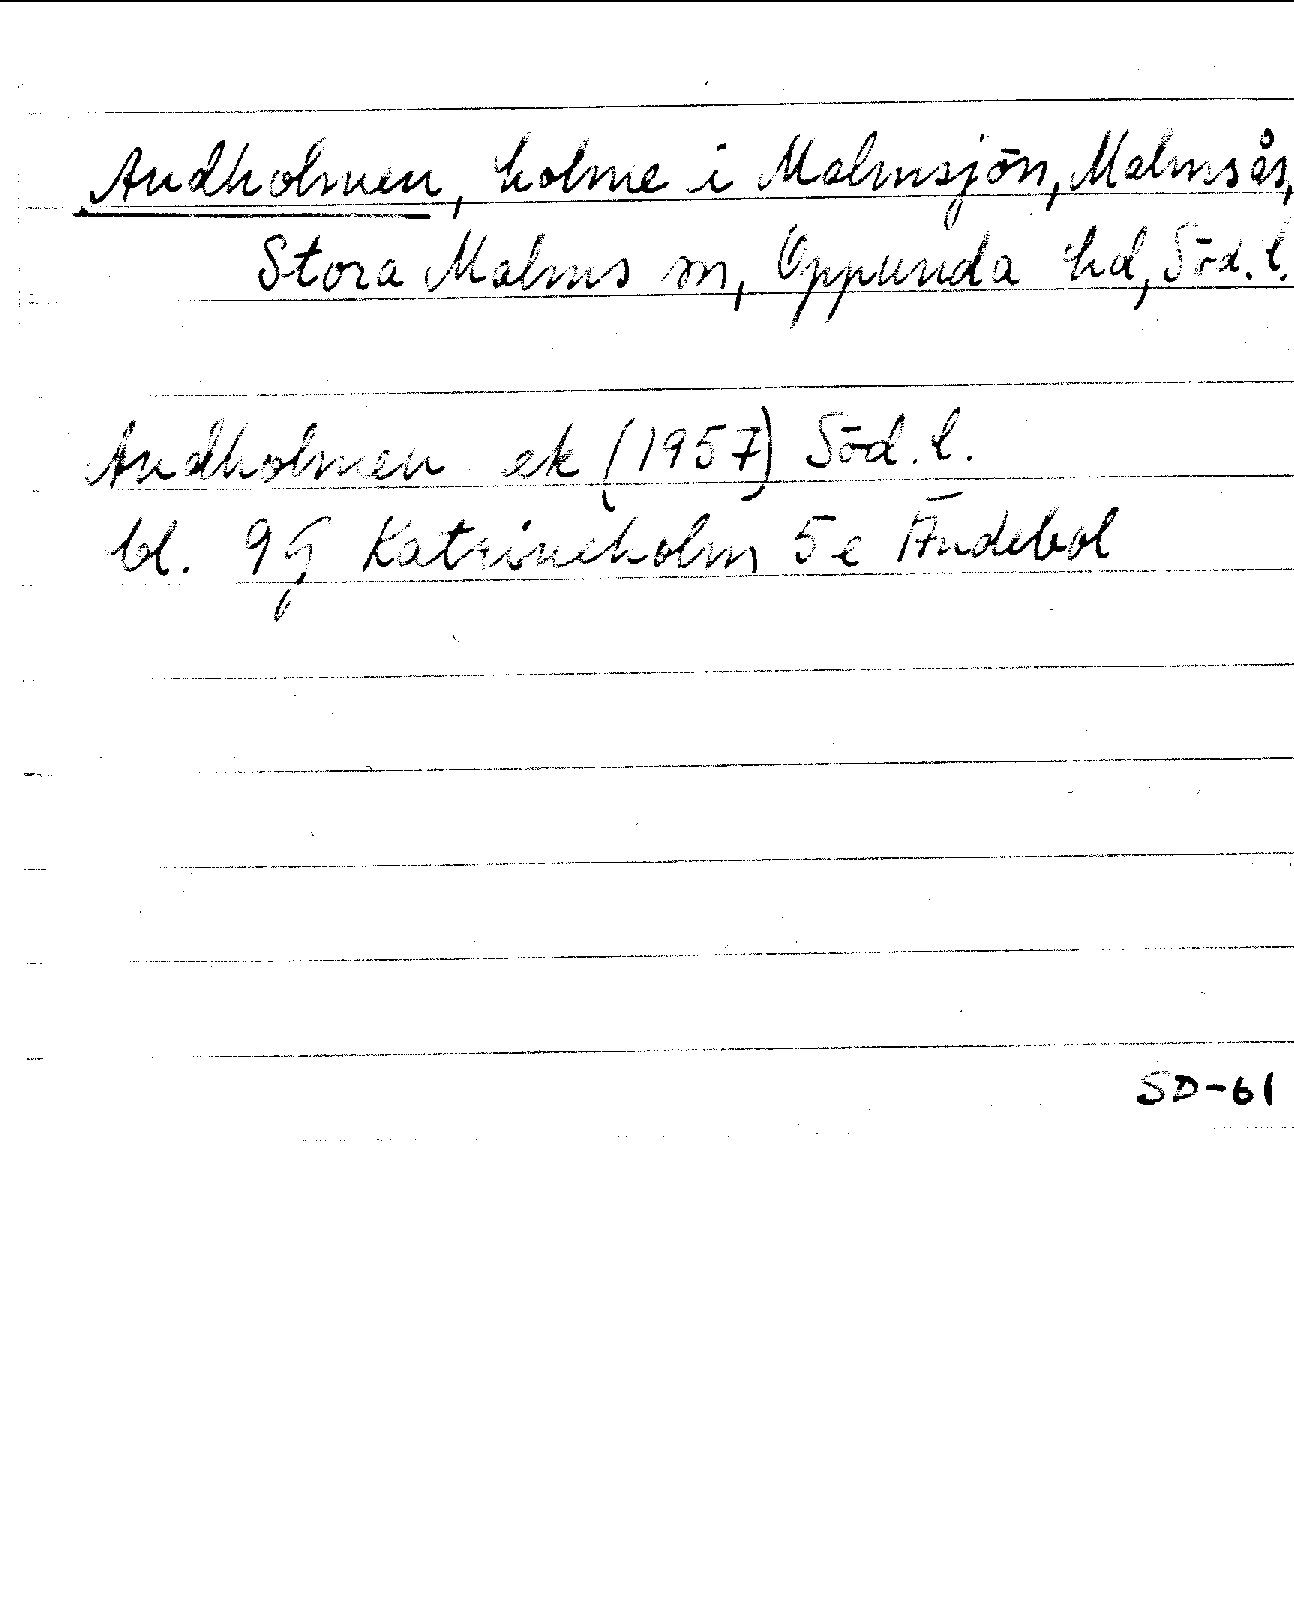 Andholmen, holme i Malmsjön, Malmsås,
Stora Malms sn, Oppunda hd, Söd. l.
Andholmen ek (1957) Söd. l.
bl. 9G Katrineholm 5e Ändebol
SD-61